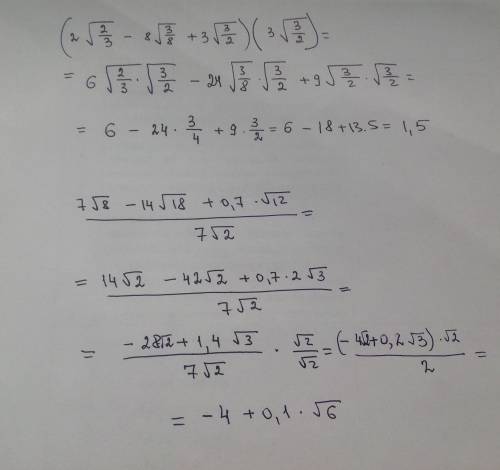 (2√(2/3) - 8√(3/8) + 3√(3/2))(3√(3/2)) =
= 6√(2/3)·√(3/2) - 24√(3/8)·√(3/2) + 9√(3/2)·√(3/2) =
= 6 - 24·3/4 + 9·3/2 = 6 - 18 + 13.5 = 1,5
(7√8 - 14√18 + 0,7·√12)/(7√2) =
= (14√2 - 42√2 + 0,7·2√3)/(7√2) =
= (-28√2 + 1,4√3)/(7√2) · √2/√2 = ((-4√2 + 0,2√3)·√2)/2 =
= -4 + 0,1·√6